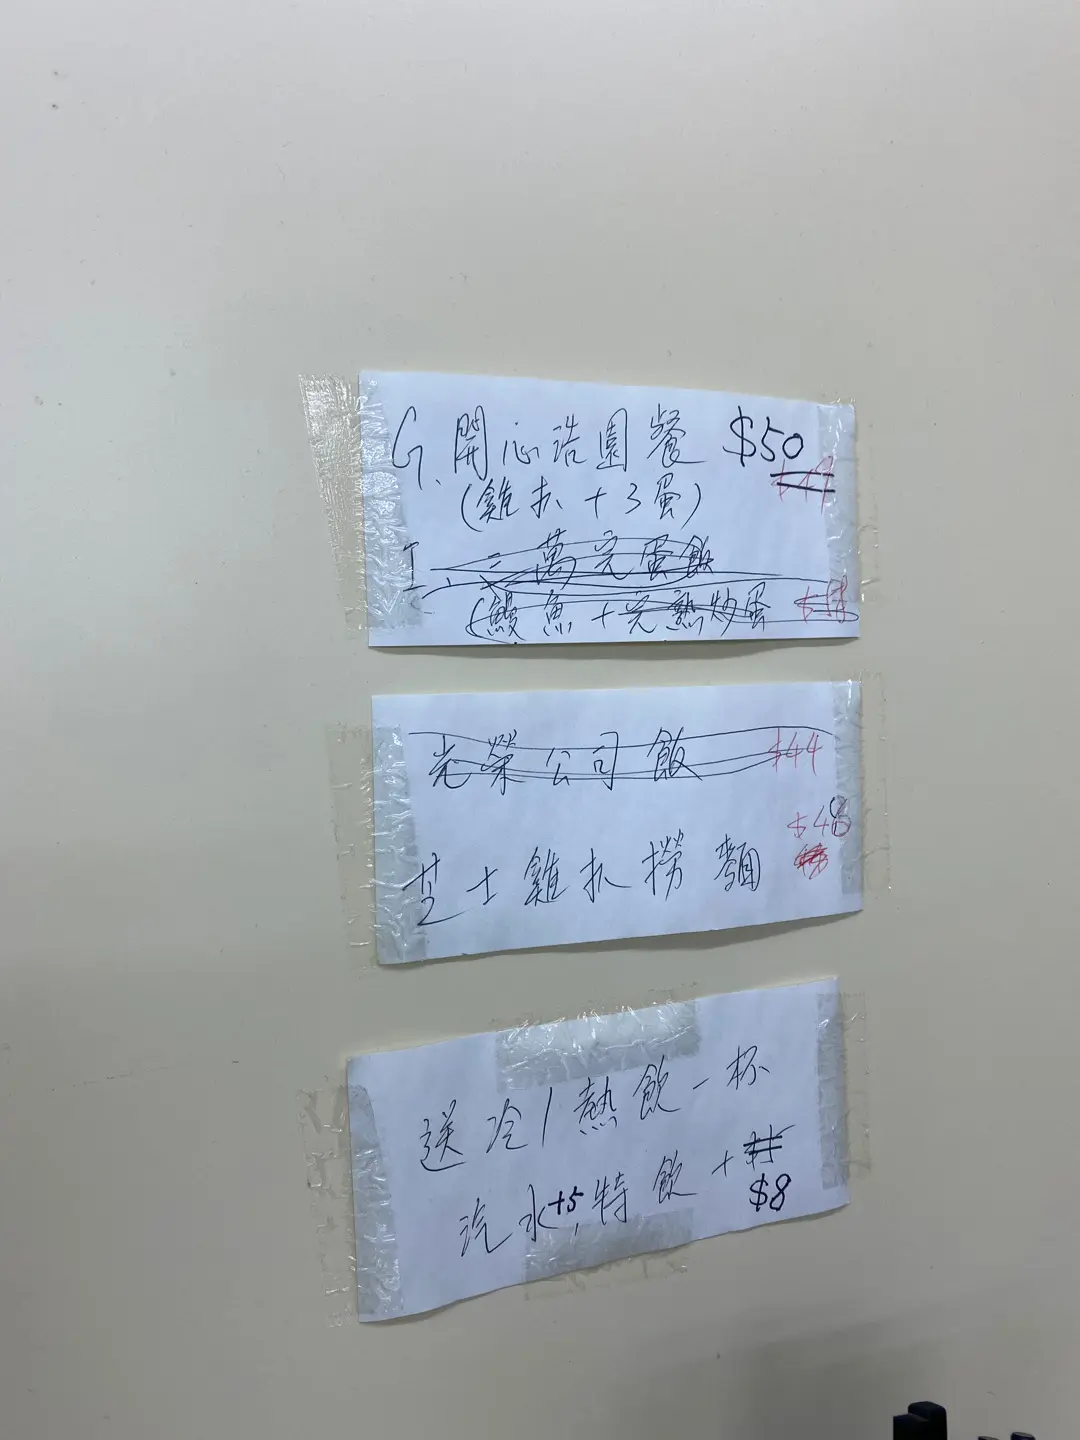 G. 開心浩園餐 $50 $49
(雞扒+3蛋)
I、二萬完蛋飯
(鰻魚+完熟炒蛋
光榮公司飯 $44
$48
芝士雞扒撈麵
送冷/熱飲一杯
汽水+5,特飲+
$8